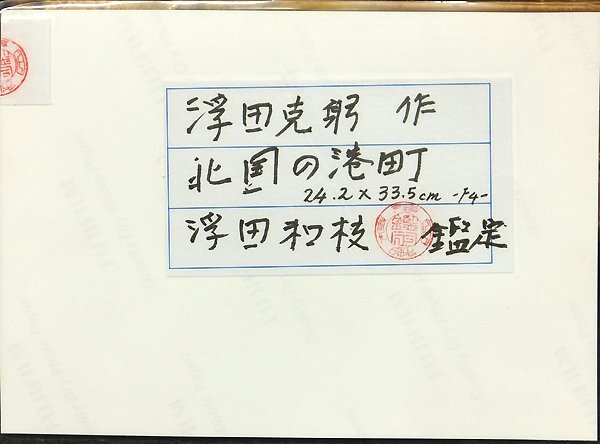 浮田克躬 作
北国の港町
24.2×33.5cm -F4-
浮田和枝 鑑定